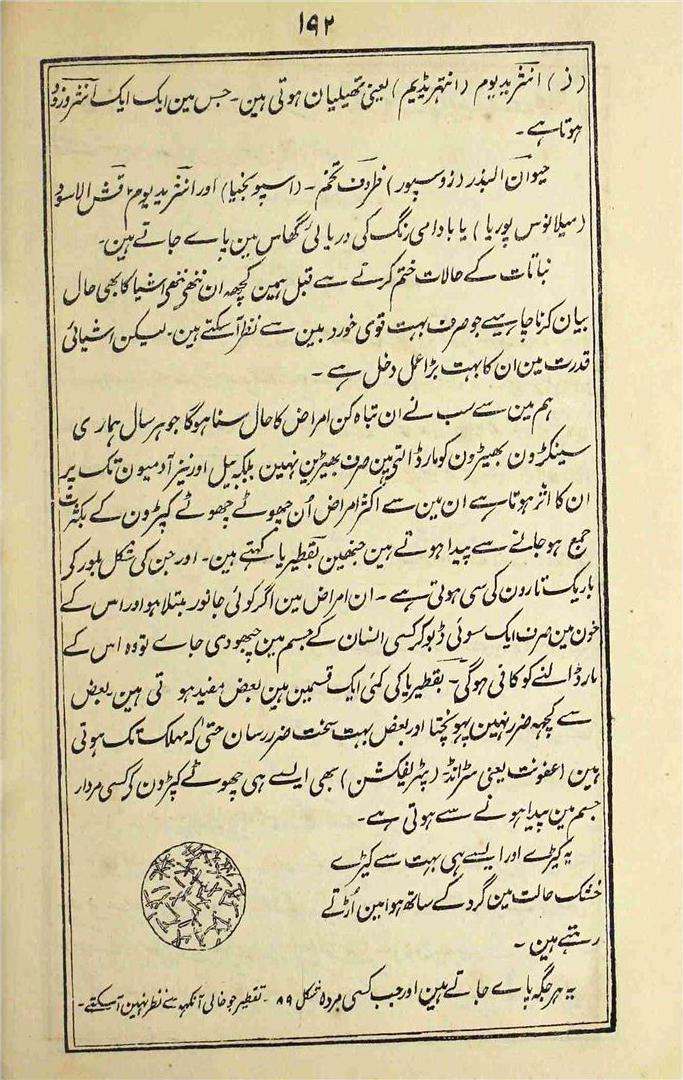 ۱۹۲
(ز) انتڑیدیوم (انتہریڈیم) یعنی تھیلیان ہوتی ہین۔ جس مین ایک ایک انتروزوڈ
ہوتا ہے۔
حیوان البذر (زوسپور) ظروف تخم۔ (اسپوبخیا) اور انتڑیدیوم قش الاسود
(میلانوس پوریا) یا بادامی رنگ کی دریائی گھاس مین پاے جاتے ہین۔
نباتات کے حالات ختم کرنے سے قبل ہمین کچھہ ان ننھی ننھی اشیا کا بھی حال
بیان کرنا چاہیے جو صرف بہت قوی خورد بین سے نظر آسکتے ہین۔ لیکن اشیائی
قدرت مین ان کا بہت بڑا عمل دخل ہے۔
ہم مین سے سب نے ان تباہ کن امراض کا حال سنا ہوگا جو ہر سال ہماری
سینکڑون بھیڑون کو مار ڈالتی ہین صرف بھیڑین نہین بلکہ بیل اور نیز آدمیون تک پر
ان کا اثر ہوتا ہے ان مین سے اکثر امراض اُن چھوٹے چھوٹے کیڑون کے بکثرت
جمع ہو جانے سے پیدا ہوتے ہین جنھین بقطیریا کہتے ہین۔ اور جن کی شکل بلور کی
باریک تارون کی سی ہوتی ہے۔ ان امراض مین اگر کوئی جانور مبتلا ہو اور اس کے
خون مین صرف ایک سوئی ڈبو کر کسی انسان کے جسم مین چبھو دی جاے تو وہ اس کے
مار ڈالنے کو کافی ہوگی۔ بقطیریا کی کئی ایک قسمین ہین بعض مفید ہوتی ہین بعض
سے کچھہ ضرر نہین پہونچتا اور بعض بہت سخت ضرر رسان حتیٰ کہ مہلک تک ہوتی
ہین (عفونت یعنی سڑانڈ (پٹریفکشن) بھی ایسے ہی چھوٹے کیڑون کو کسی مردار
جسم مین پیدا ہونے سے ہوتی ہے۔
یہ کیڑے اور ایسے ہی بہت سے کیڑے
خشک حالت مین گرد کے ساتھ ہوا مین اُڑتے
رہتے ہین۔
یہ ہر جگہ پاے جاتے ہین اور جب کسی مردہ
شکل ۸۹۔ تقطیر جو خالی آنکھو سے نظر نہین آسکتے۔